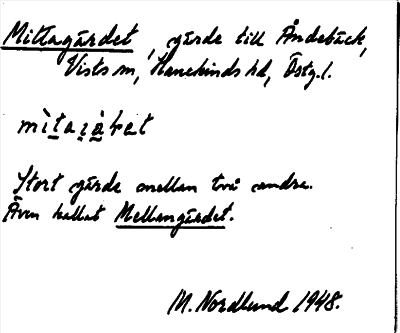 Mittagärdet, gärde till Åndebäck,
Vists sn, Hanekinds hd, Östg.l.
Stort gärde mellan två andra.
Även kallat Mellangärdet.
M. Nordlund 1948.